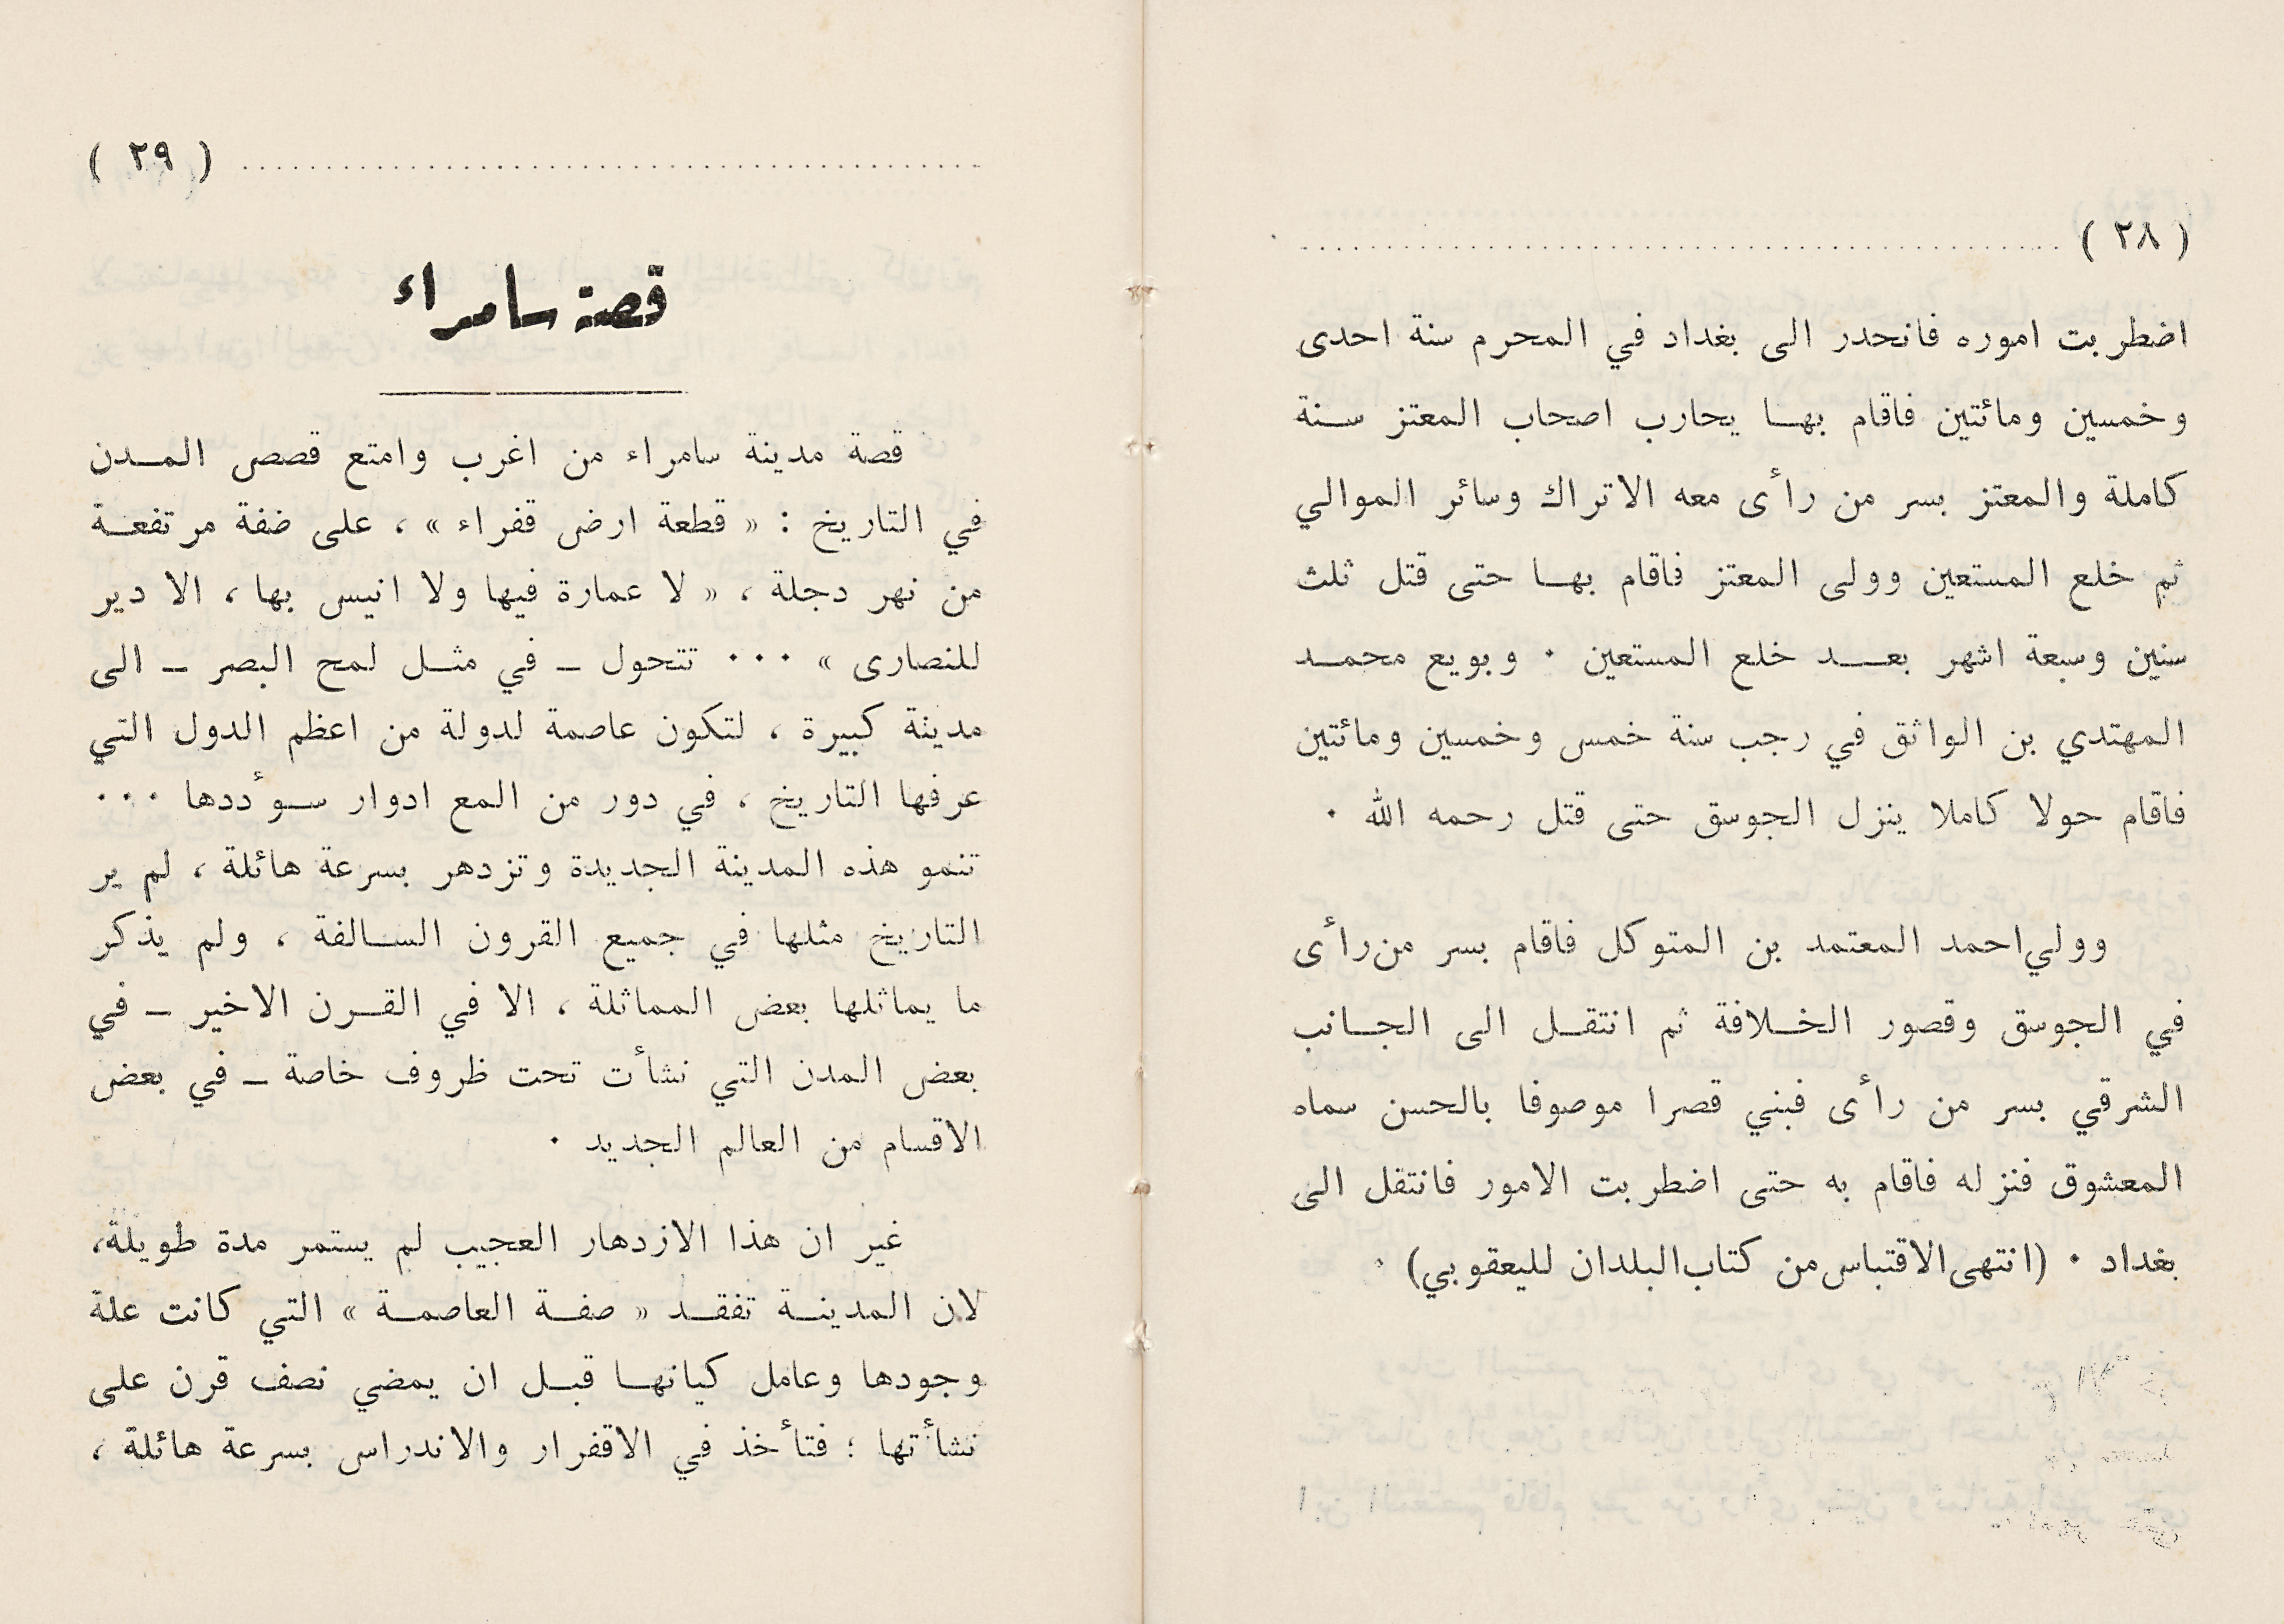 ( ٢٨ )
اضطربت اموره فانحدر الى بغداد في المحرم سنة احدى
وخمسين ومائتين فاقام بها يحارب اصحاب المعتز سنة
كاملة والمعتز بسر من رأى معه الاتراك وسائر الموالي
ثم خلع المستعين وولى المعتز فاقام بها حتى قتل ثلث
سنين وسبعة اشهر بعد خلع المستعين ٠ وبويع محمد
المهتدي بن الواثق في رجب سنة خمس وخمسين ومائتين
فاقام حولا كاملا ينزل الجوسق حتى قتل رحمه الله ٠
وولي احمد المعتمد بن المتوكل فاقام بسر من رأى
في الجوسق وقصور الخلافة ثم انتقل الى الجانب
الشرقي بسر من رأى فبني قصرا موصوفا بالحسن سماه
المعشوق فنزله فاقام به حتى اضطربت الامور فانتقل الى
بغداد ٠ (انتهى الاقتباس من كتاب البلدان لليعقوبي) ٠
( ٢٩ )
قصة سامراء
قصة مدينة سامراء من اغرب وامتع قصص المدن
في التاريخ : « قطعة ارض قفراء » ، على ضفة مرتفعة
من نهر دجلة ، « لا عمارة فيها ولا انيس بها ، الا دير
للنصارى » ٠٠٠ تتحول – في مثل لمح البصر – الى
مدينة كبيرة ، لتكون عاصمة لدولة من اعظم الدول التي
عرفها التاريخ ، في دور من المع ادوار سوأددها ٠٠٠
تنمو هذه المدينة الجديدة وتزدهر بسرعة هائلة ، لم ير
التاريخ مثلها في جميع القرون السالفة ، ولم يذكر
ما يماثلها بعض المماثلة ، الا في القرن الاخير – في
بعض المدن التي نشأت تحت ظروف خاصة – في بعض
الاقسام من العالم الجديد ٠
غير ان هذا الازدهار العجيب لم يستمر مدة طويلة،
لان المدينة تفقد « صفة العاصمة » التي كانت علة
وجودها وعامل كيانها قبل ان يمضي نصف قرن على
نشأتها ؛ فتأخذ في الاقفرار والاندراس بسرعة هائلة ،